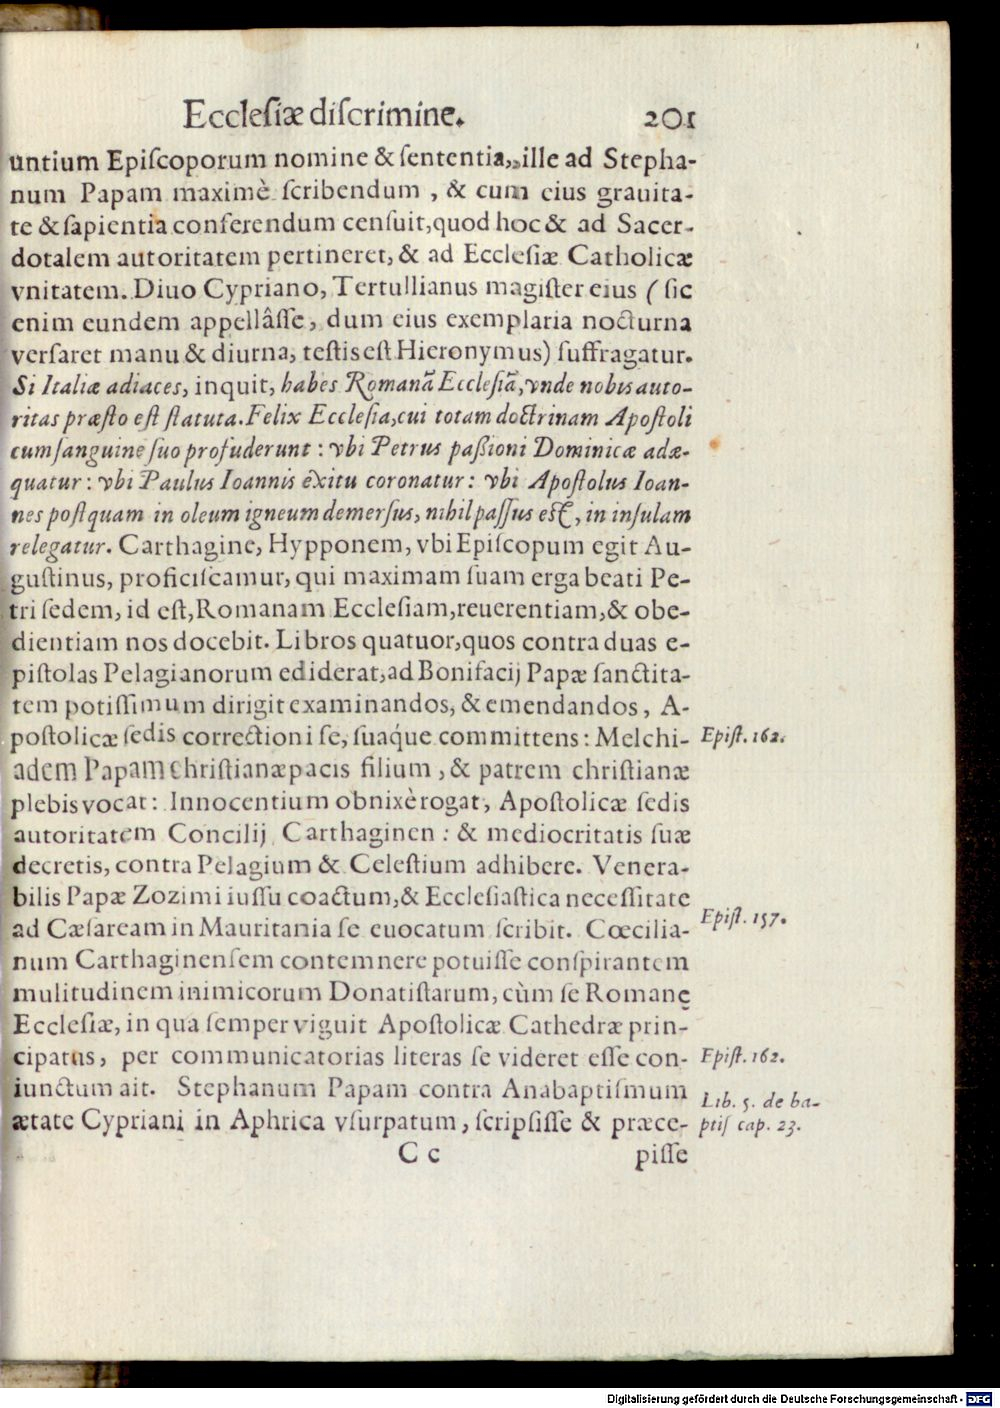 Eccleſiæ diſcrimine. 201
untium Epiſcoporum nomine & ſententia, ille ad Stepha-
num Papam maximè ſcribendum , & cum eius grauita-
te & ſapientia conferendum cenſuit, quod hoc & ad Sacer-
dotalem autoritatem pertineret, & ad Eccleſiæ Catholicæ
vnitatem. Diuo Cypriano, Tertullianus magiſter eius ( ſic
enim eundem appellâſſe, dum eius exemplaria nocturna
verſaret manu & diurna, teſtis eſt Hieronymus) ſuffragatur.
Si Italiæ adiaces, inquit, habes Romanā Eccleſiā, vnde nobis auto-
ritas præſto eſt ſtatuta. Felix Eccleſia, cui totam doctrinam Apoſtoli
cum ſanguine ſuo profuderunt : vbi Petrus paſſioni Dominicæ adæ-
quatur : vbi Paulus Ioannis exitu coronatur : vbi Apoſtolus Ioan-
nes poſtquam in oleum igneum demerſus, nihil paſſus eſt, in inſulam
relegatur. Carthagine, Hypponem, vbi Epiſcopum egit Au-
guſtinus, proficiſcamur, qui maximam ſuam erga beati Pe-
tri ſedem, id eſt, Romanam Eccleſiam, reuerentiam, & obe-
dientiam nos docebit. Libros quatuor, quos contra duas e-
piſtolas Pelagianorum ediderat, ad Bonifacij Papæ ſanctita-
tem potiſſimum dirigit examinandos, & emendandos, A-
poſtolicæ ſedis correctioni ſe, ſuaq́ue committens : Melchi-
adem Papam Chriſtianæ pacis filium , & patrem chriſtianæ
plebis vocat : Innocentium obnixè rogat, Apoſtolicæ ſedis
autoritatem Concilij Carthaginen : & mediocritatis ſuæ
decretis, contra Pelagium & Celeſtium adhibere. Venera-
bilis Papæ Zozimi iuſſu coactum, & Eccleſiaſtica neceſſitate
ad Cæſaream in Mauritania ſe euocatum ſcribit. Cœcilia-
num Carthaginenſem contemnere potuiſſe conſpirantem
mulitudinem inimicorum Donatiſtarum, cùm ſe Romanę
Eccleſiæ, in qua ſemper viguit Apoſtolicæ Cathedræ prin-
cipatus, per communicatorias literas ſe videret eſſe con-
iunctum ait. Stephanum Papam contra Anabaptiſmum
ætate Cypriani in Aphrica vſurpatum, ſcripſiſſe & præce-
C c piſſe
Epiſt. 162.
Epiſt. 157.
Epiſt. 162.
Lib. 5. de ba-
ptiſ cap. 23.
Digitalisierung gefördert durch die Deutsche Forschungsgemeinschaft - DFG